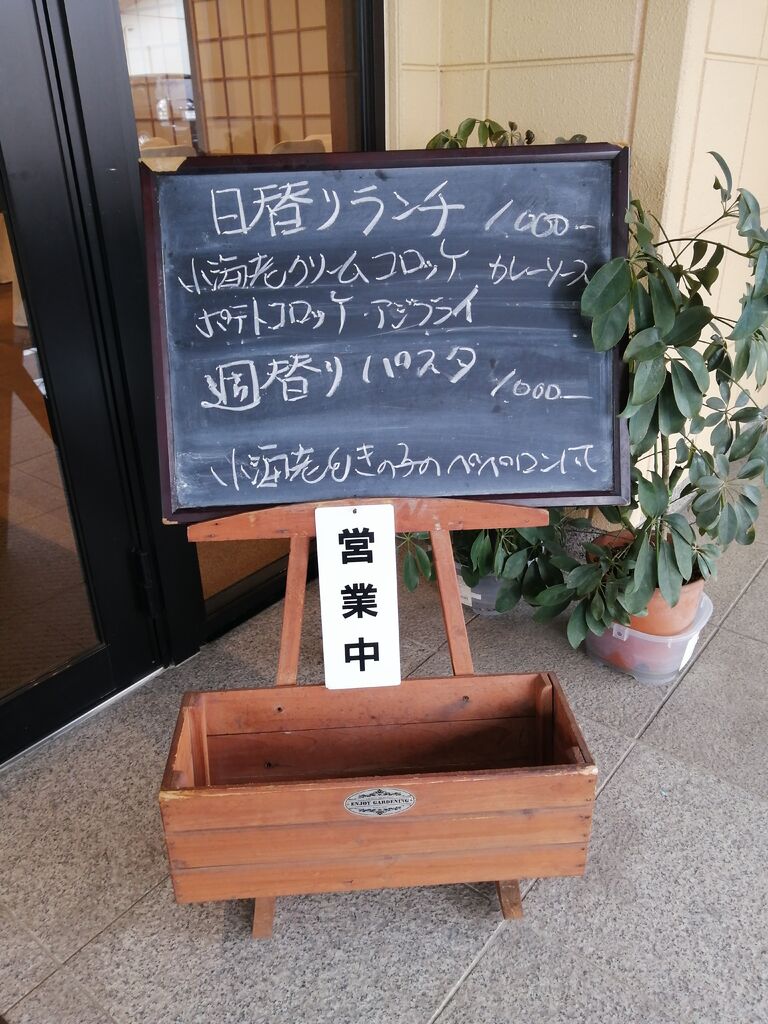 日替りランチ 1000-
小海老クリームコロッケ カレーソース
ポテトコロッケ・アジフライ
週替りパスタ 1000-
小海老ときの子のペペロンチーノ
営業中
ENJOY GARDENING